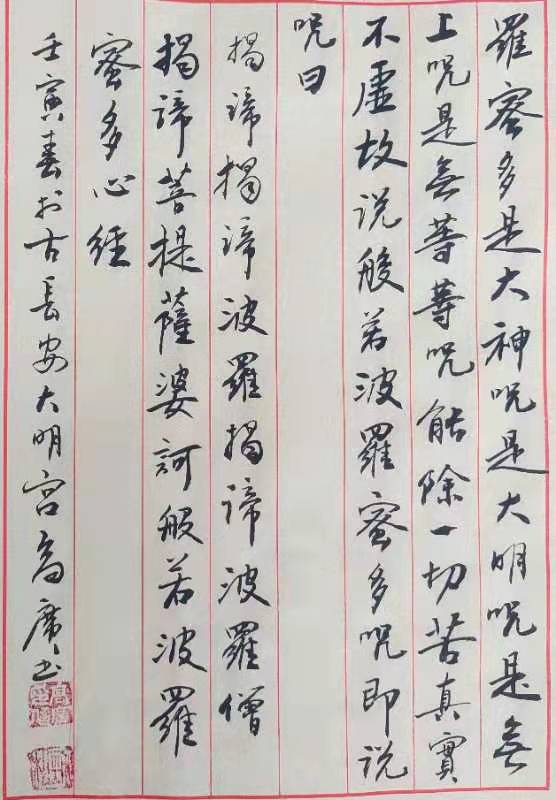 羅蜜多是大神呪是大明呪是無
上呪是無等等呪能除一切苦真實
不虛故说般若波羅蜜多呪即说
呪曰
揭諦揭諦波羅揭諦波羅僧
揭諦菩提薩婆訶般若波羅
蜜多心經
壬寅春於古長安大明宮高书